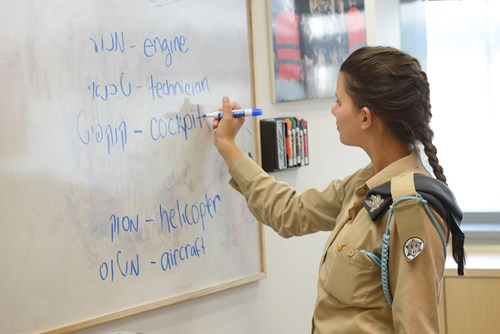 מנוע - engine
טכנאי - technician
קוקפיט - cockpit
מסוק - helicopter
מטוס - aircraft